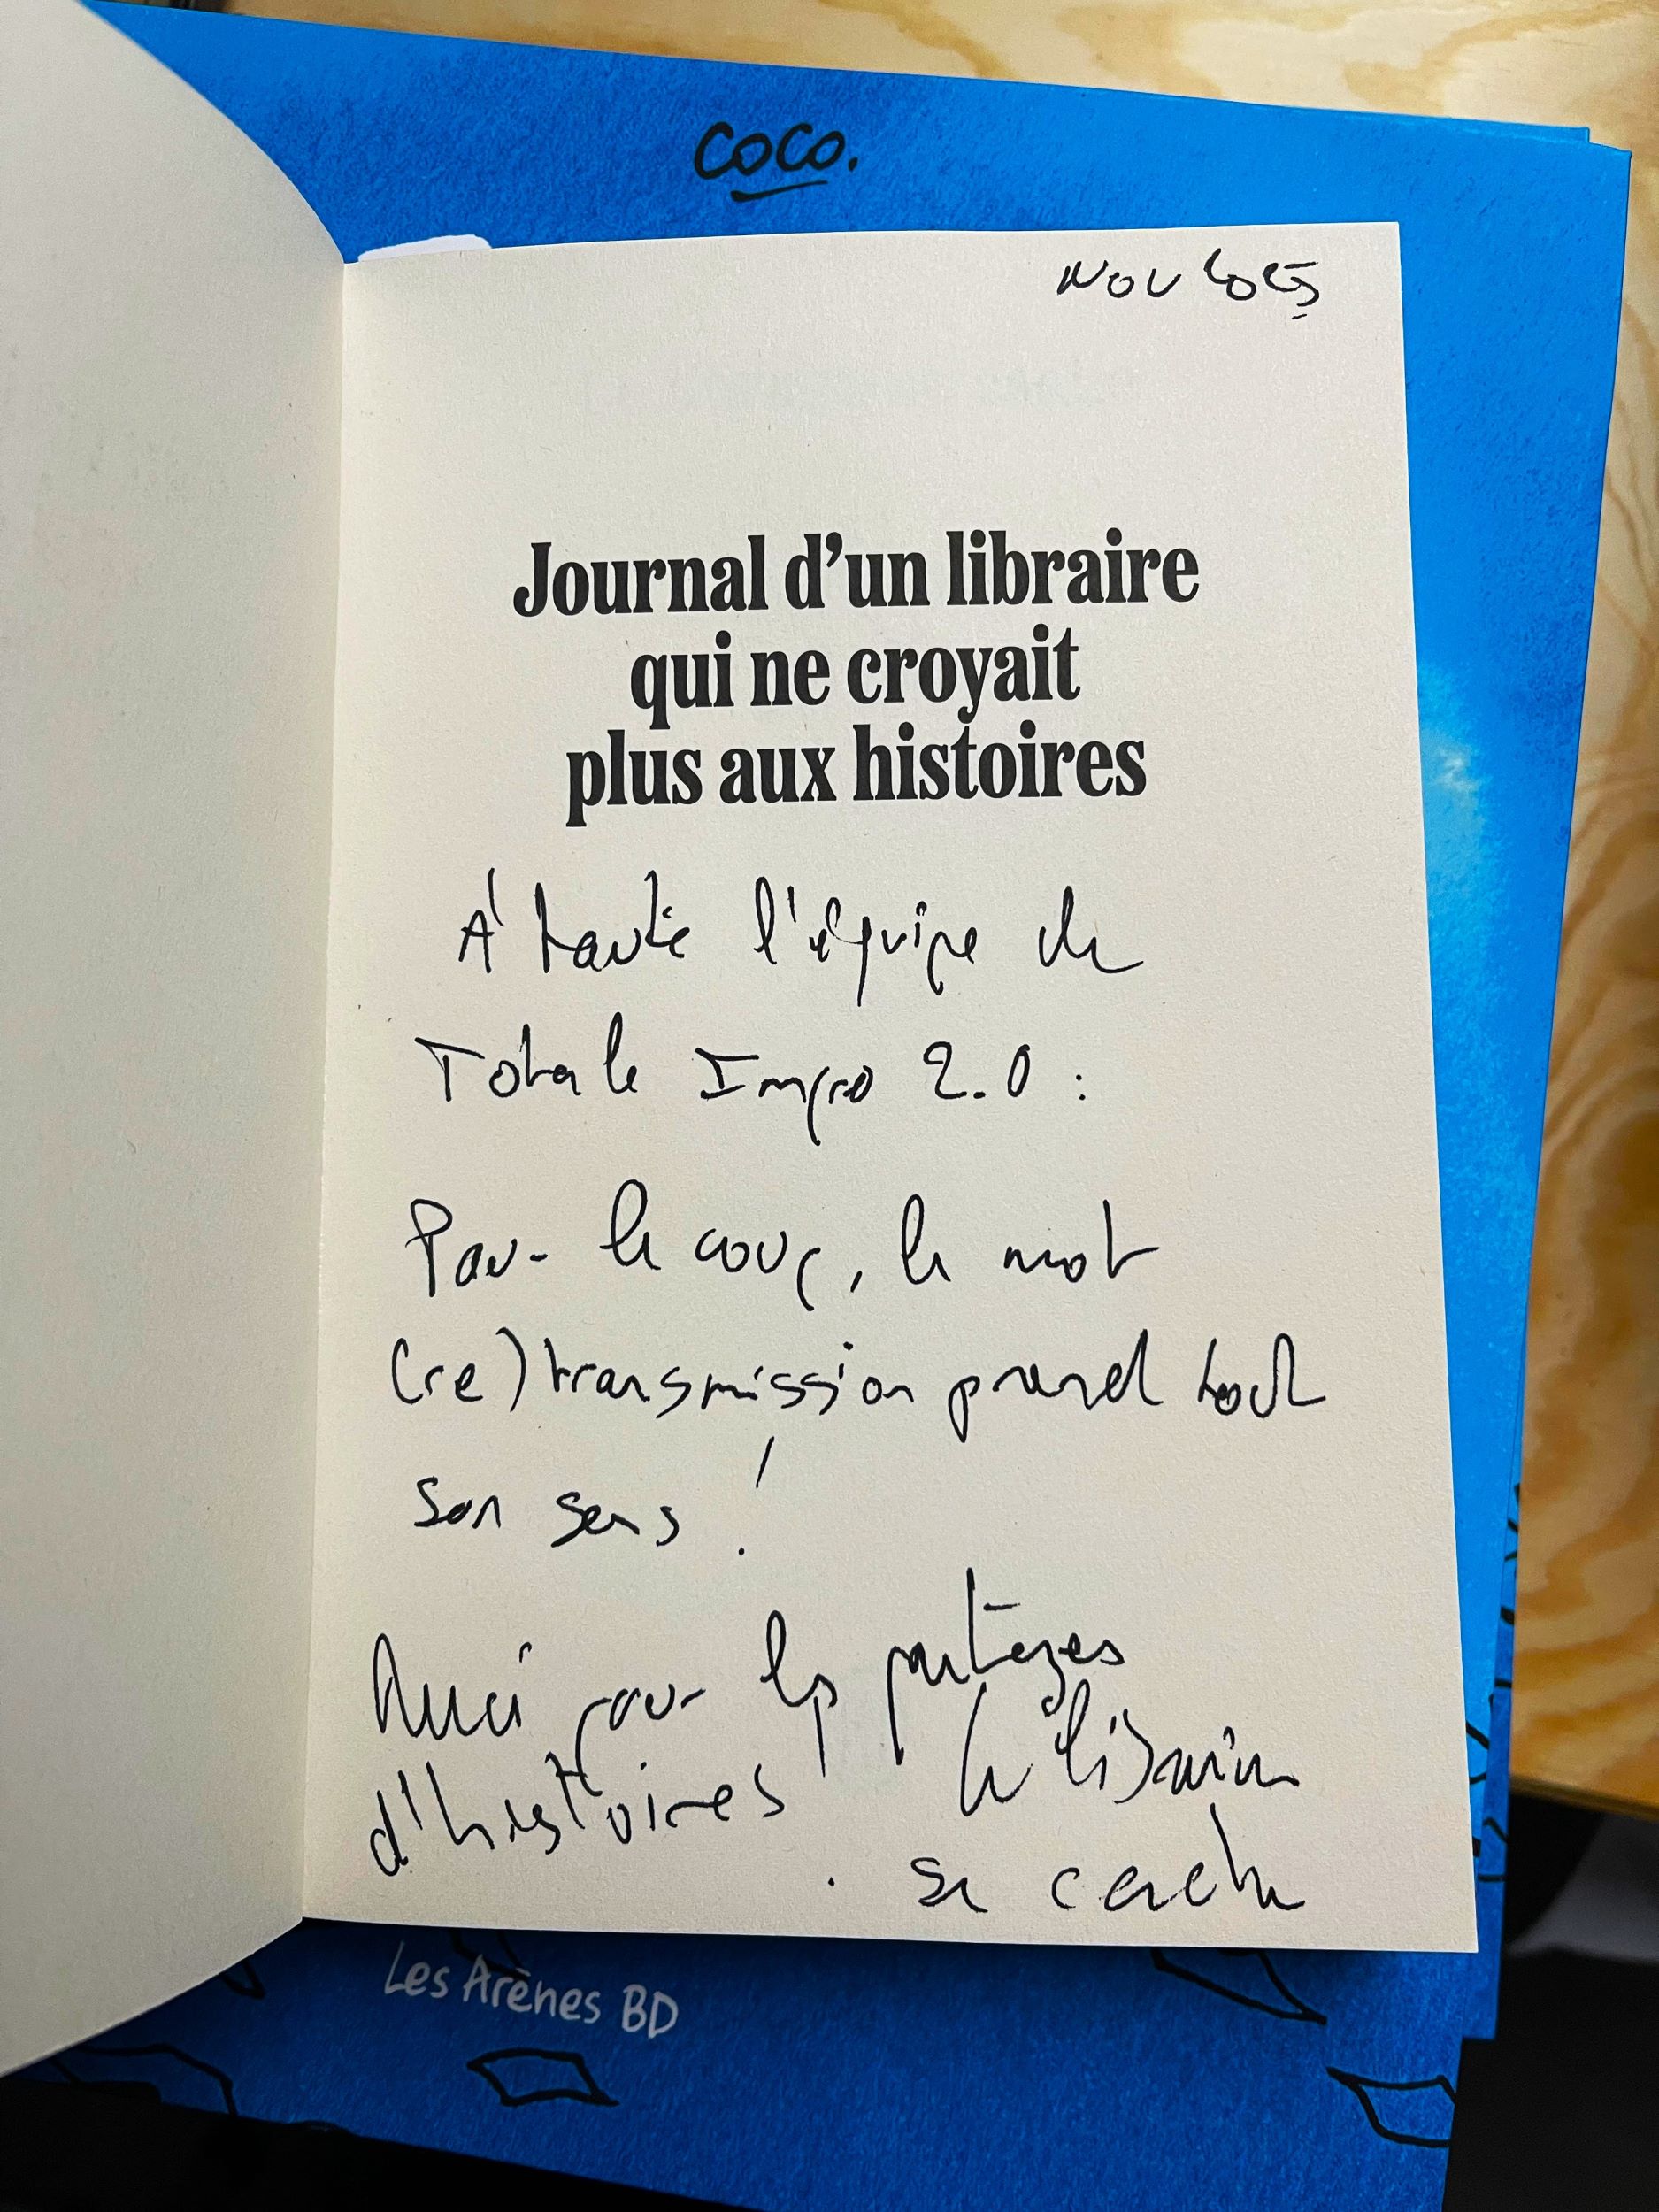 COCO.
NOV 2025
Journal d'un libraire
qui ne croyait
plus aux histoires
À toute l'équipe de
Totale Impro 2.0 :
Pour le coup, le mot
(re)transmission prend tout
son sens !
Merci pour les partages
d'histoires.
Le libraire
se cache
Les Arènes BD